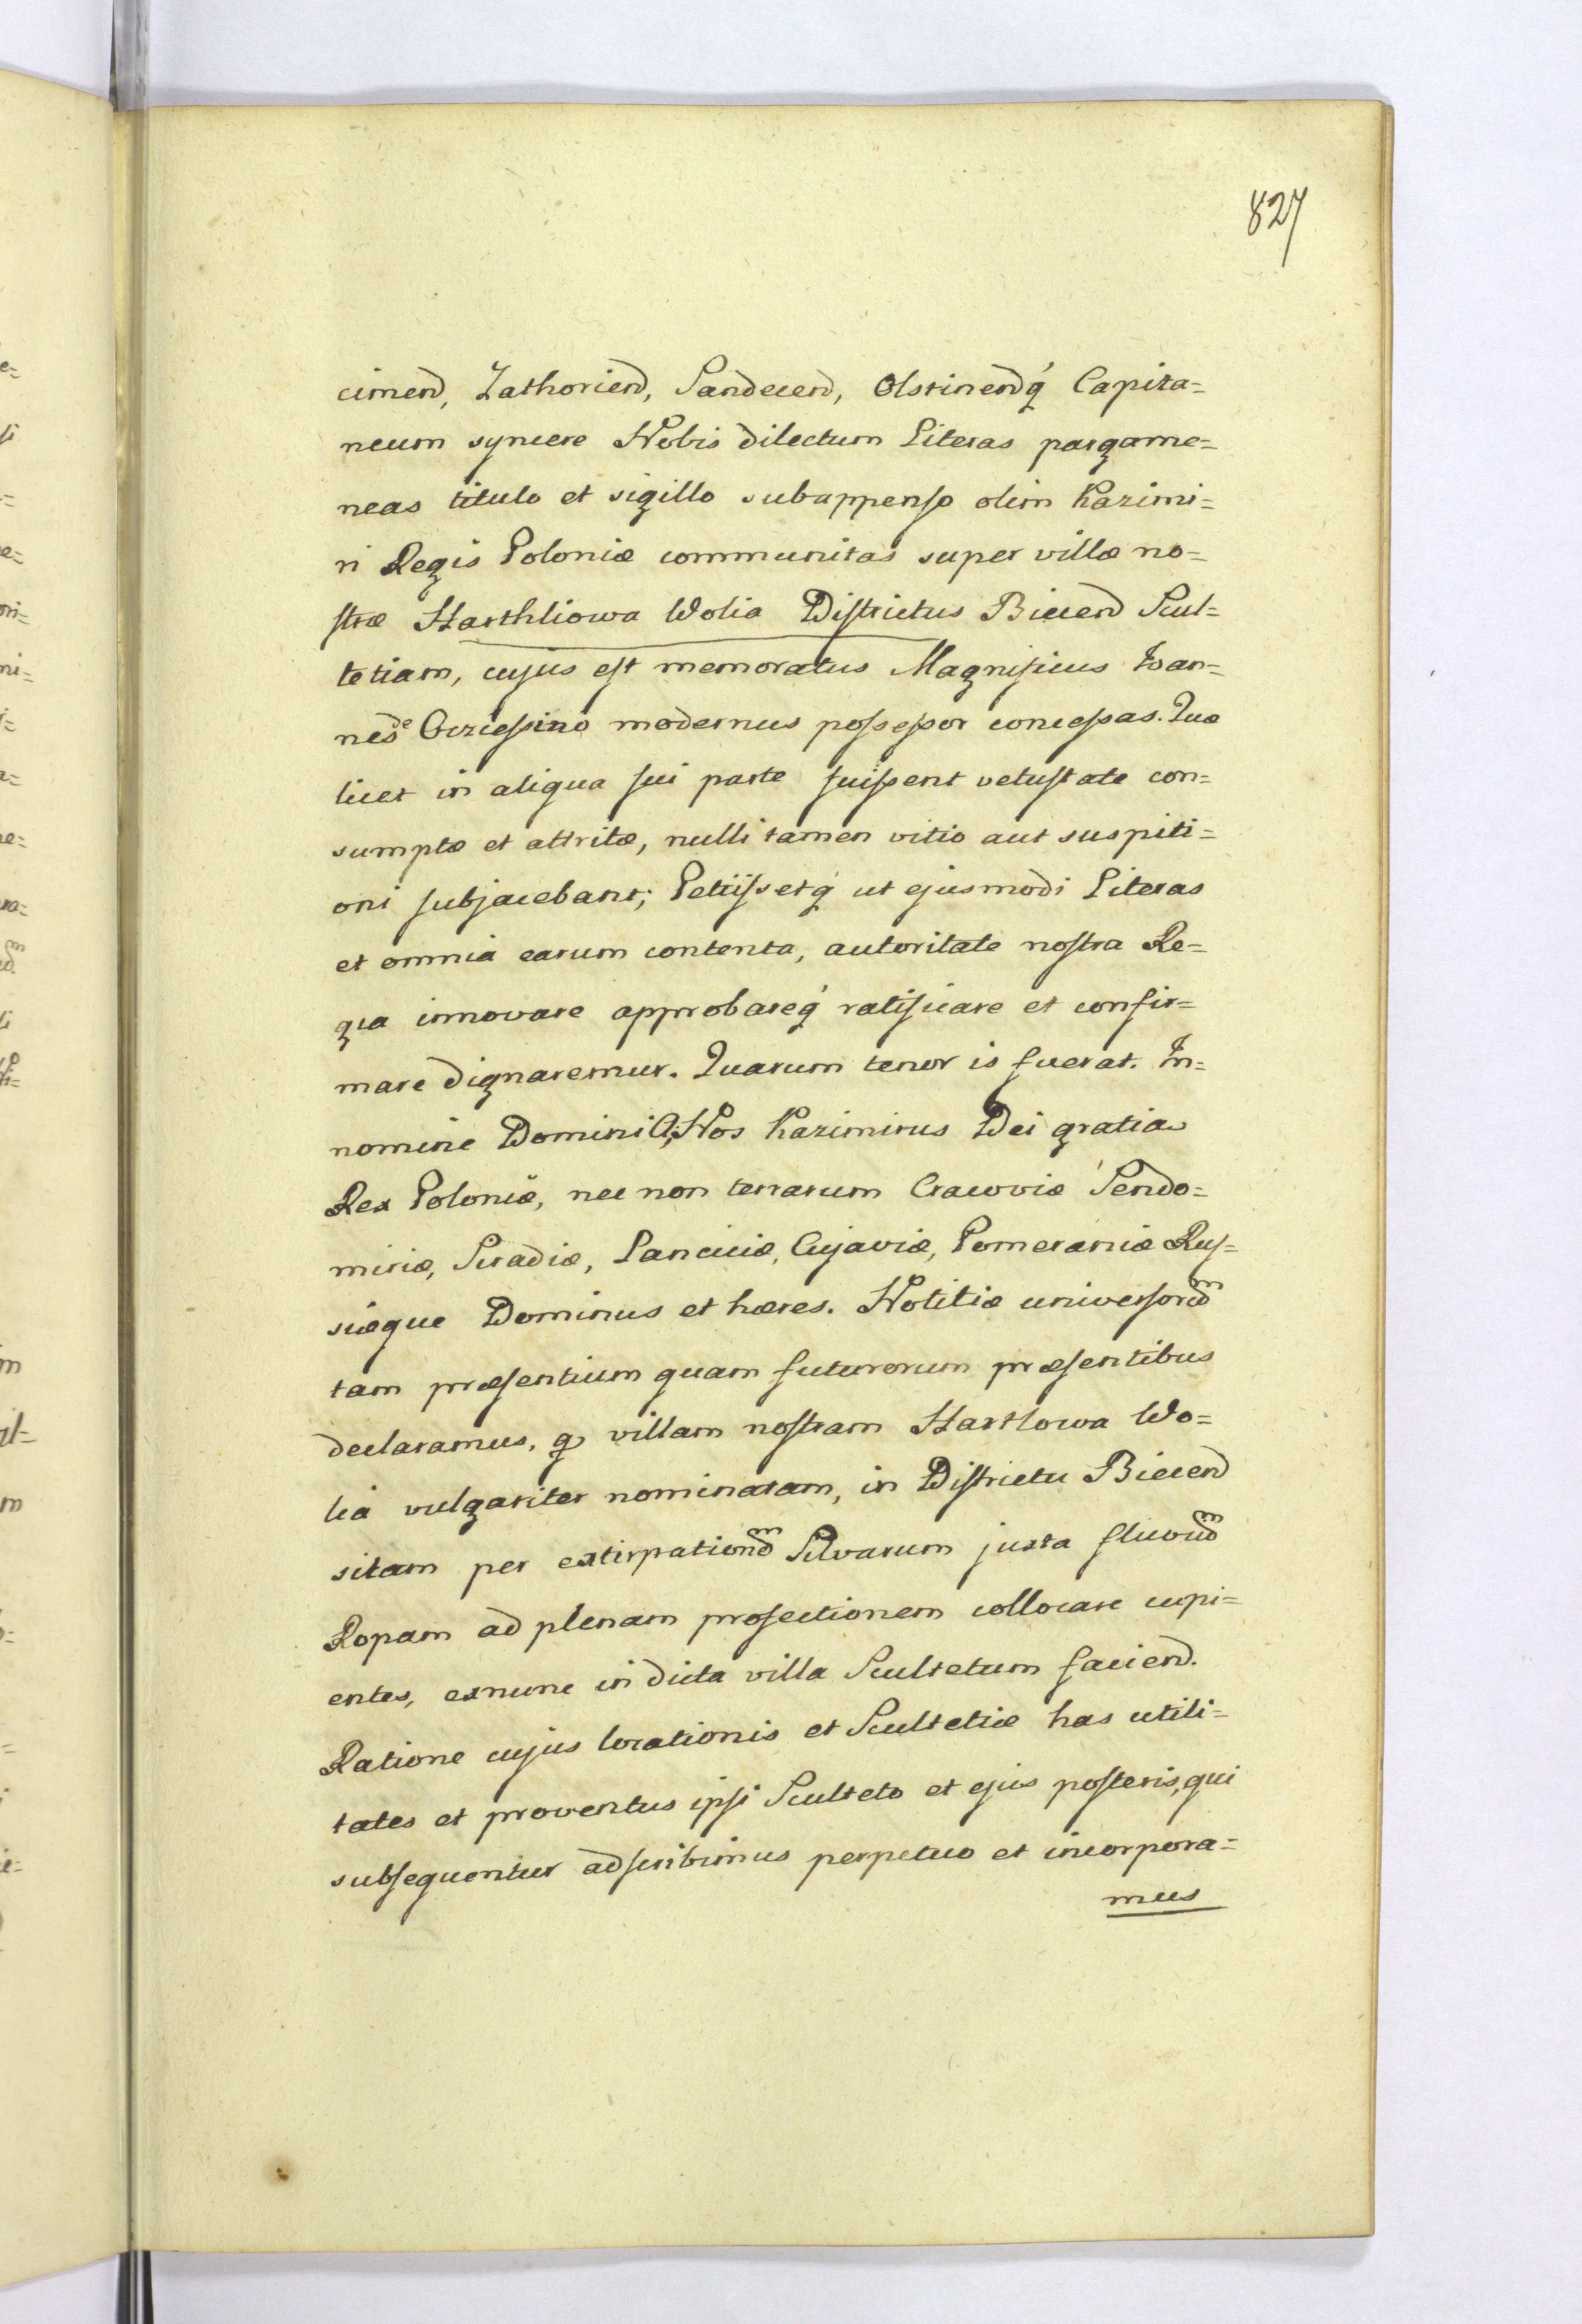 827
cimend, Zathoriend, Sandecend, Olstinendq́ Capita=
neum syncere Nobis dilectum Literas pargame=
neas titulo et sigillo subappenso olim Kazimi=
ri Regis Poloniæ communitas super villæ no=
stræ Harthliowa Wolia Districtus Biecend Scul=
tetiam, cujus est memoratus Magnificus Ioan=
nes de possessor modernus concessas. Quæ
licet in aliqua sui parte fuissent vetustate con=
sumptæ et attritæ, nulli tamen vitio aut suspiti=
oni subjacebant; Petiissetq́ ut ejusmodi Literas
et omnia earum contenta, autoritate nostra Re=
gia innovare approbareq́ ratificare et confir=
mare dignaremur. Quarum tenor is fuerat. In=
nomine Domini A; Nos Kazimirus Dei gratia
Rex Poloniæ, nec non terrarum Cracoviæ Sendo=
miriæ, Siradiæ, Lanciciæ, Cujaviæ, Pomeraniæ Rus=
siæque Dominus et hæres. Notitiæ universorum
tam præsentium quam futurorum præsentibus
declaramus, q villam nostram Harthlowa Wo=
lia vulgariter nominatam, in Districtu Biecend
sitam per extirpationem Silvarum juxta fluvium
Ropam ad plenam profectionem collocare cupi=
entes, exnunc in dicta villa Scultetum faciend.
Ratione cujus locationis et Scultetiæ has utili=
tates et proventus ipsi Sculteto et ejus posteris, qui
subsequentur adscribimus perpetuo et incorpora=
mus